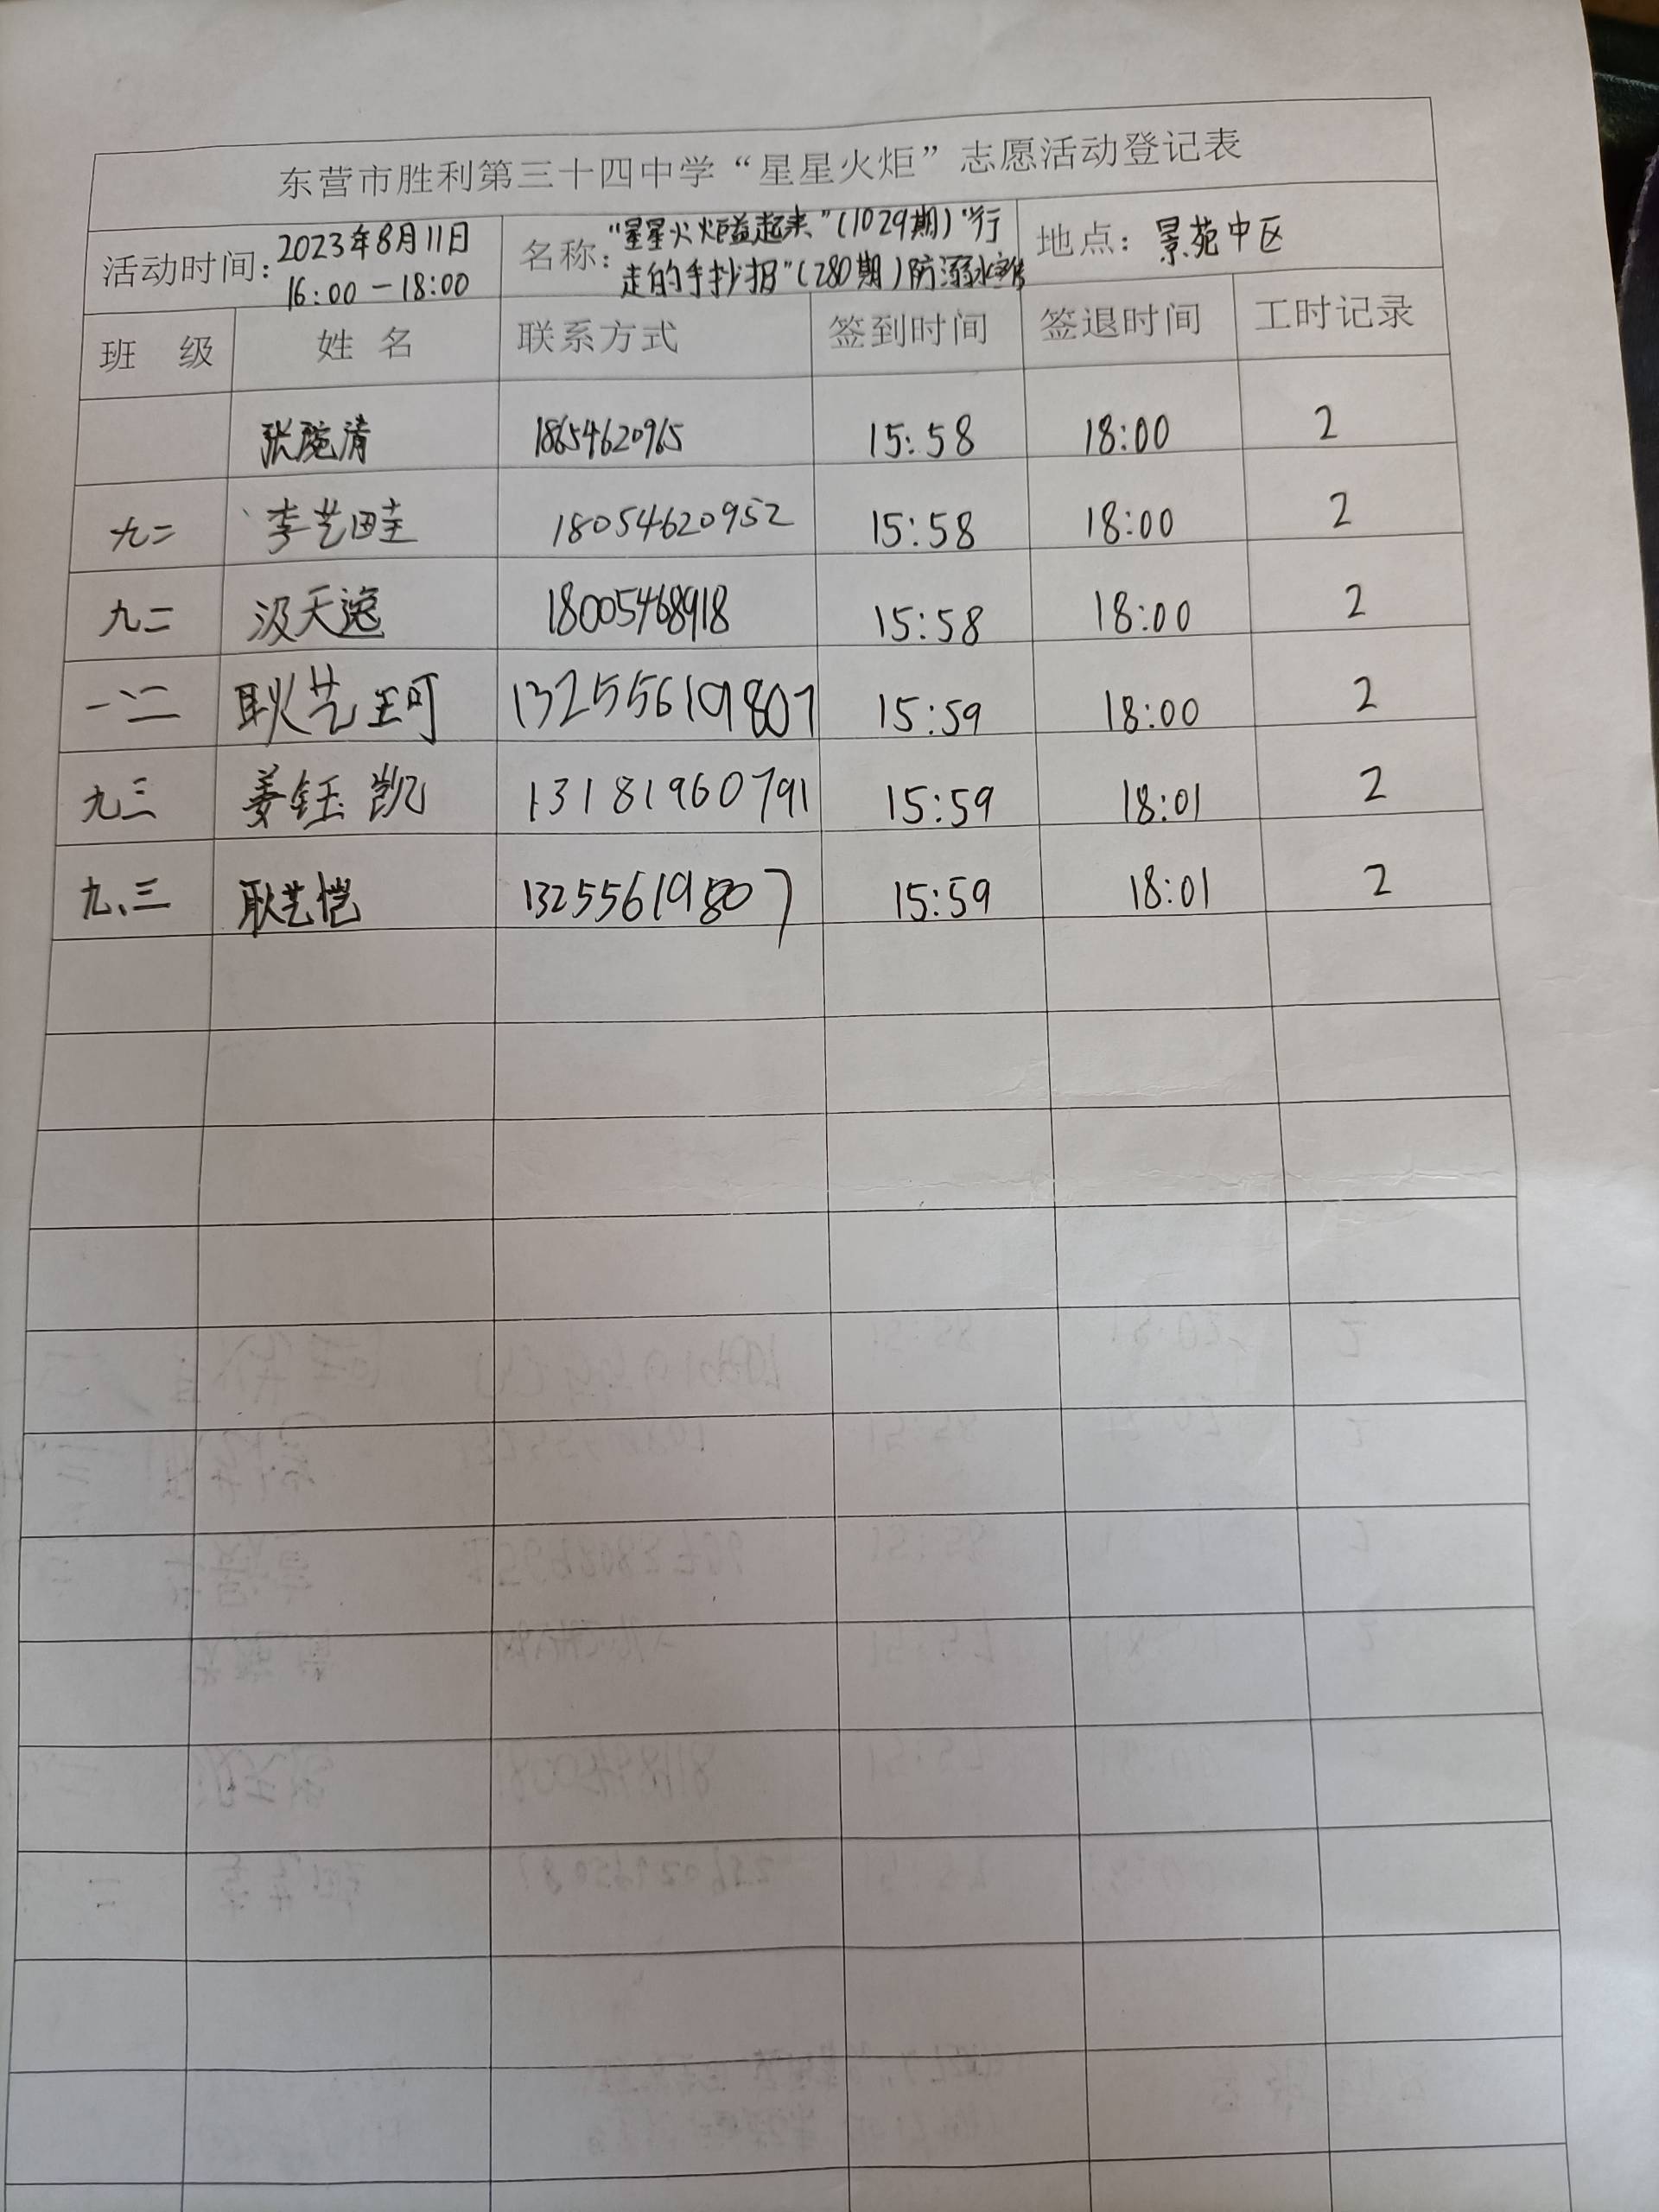 东营市胜利第三十四中学“星星火炬”志愿活动登记表
活动时间：2023年8月11日 16:00－18:00 名称：“星星火炬益起来”(1029期)“行走的手抄报”(280期)防溺水宣传 地点：景苑中区
班 级 姓 名 联系方式 签到时间 签退时间 工时记录
张 清 18654620965 15:58 18:00 2
九二 李艺畦 18054620952 15:58 18:00 2
九二 汲天逸 18005468918 15:58 18:00 2
一、二 耿艺珂 13255619807 15:59 18:00 2
九三 姜钰凯 13181960791 15:59 18:01 2
九、三 耿艺恺 13255619807 15:59 18:01 2